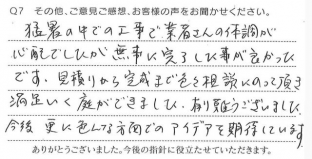 Q7 その他、ご意見ご感想、お客様の声をお聞かせください。
猛暑の中での工事で業者さんの体調が
心配でしたが無事に完了した事が良かった
です。見積りから完成まで色々相談にのって頂き
満足いく庭ができました。有り難うございました。
今後更に色んな方面でのアイデアを期待しています
ありがとうございました。今後の指針に役立たせていただきます。